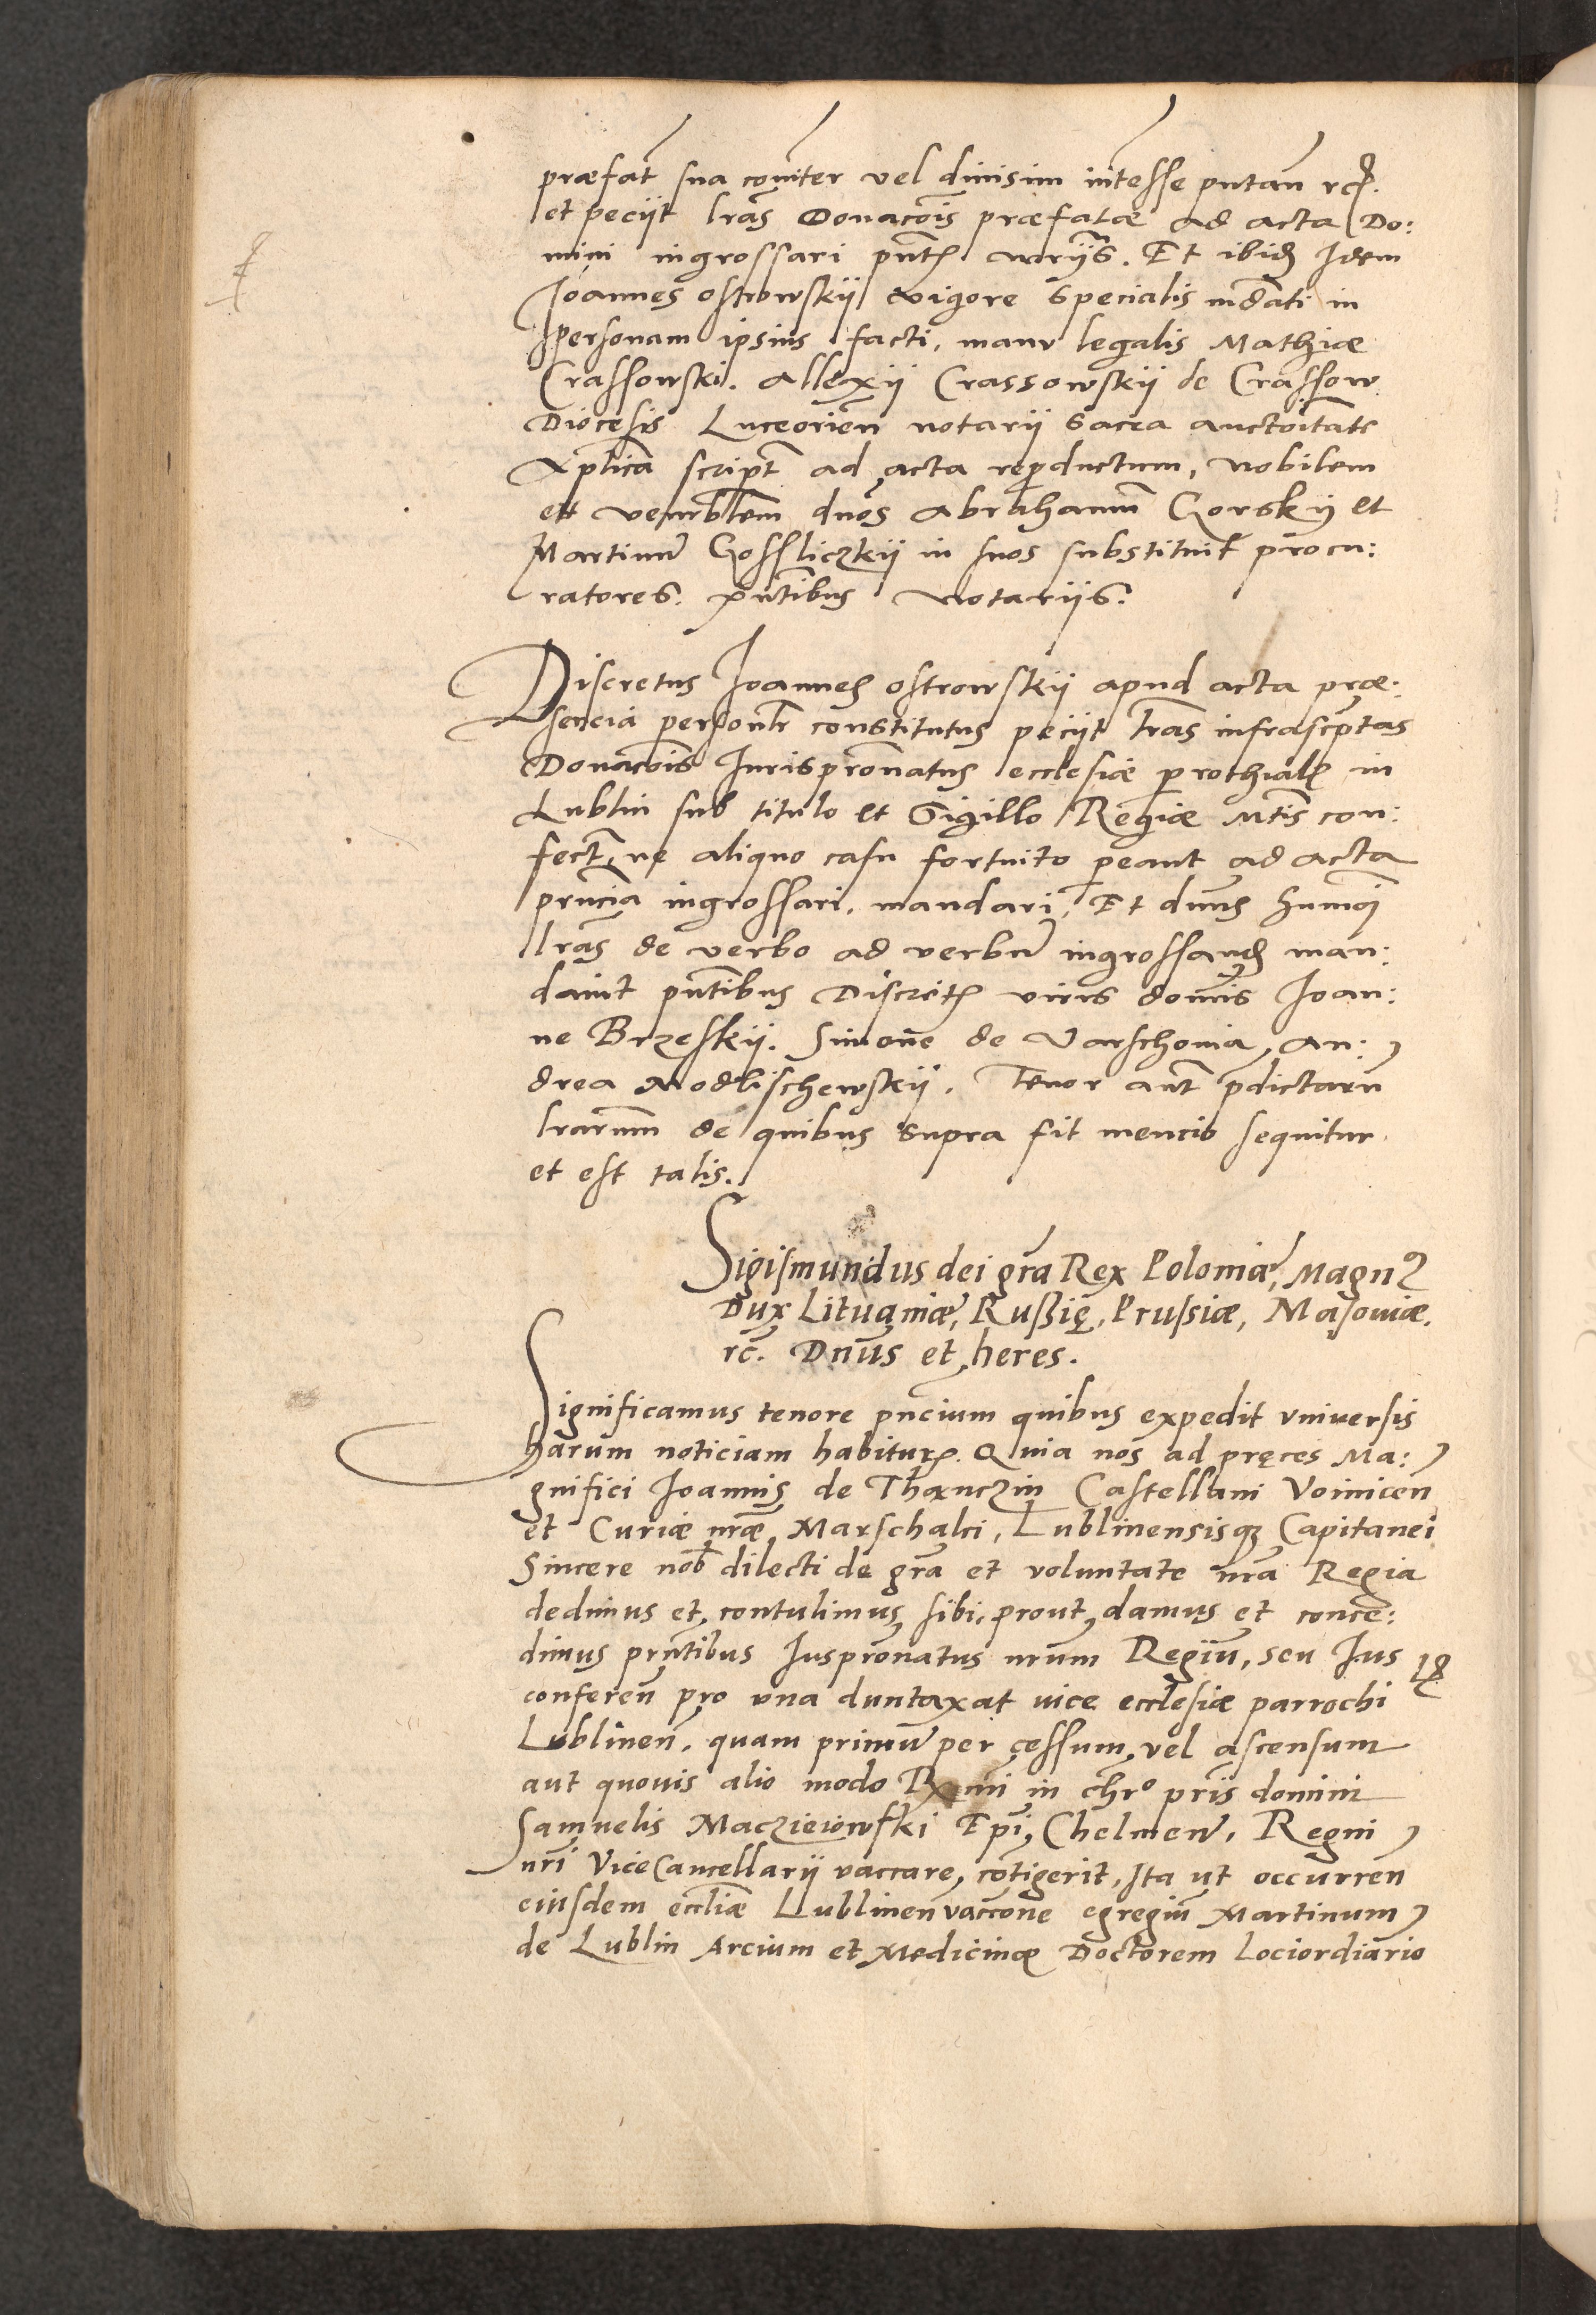 præfat̃ sua com̃iter vel diuisim int̃esse putan̄ rc̃.
et peciit lrãs Donacõis præfatæ ad acta Do:
mini ingrossari pñt. nr̃iis. Et ibid. Idem
Joannes ostrowskij vigore specialis mãdati in
personam ipsius facti, manu legalis Mathiæ
Crassowski. Allexij Crassowskij de Crassow
Diocesis Luceorien̄ notarii sacra auctoritate
Ap̃lica script̃ ad acta reproductum, nobilem
et venerãblem dnõs Abrahamũ Gorskij et
Martinũ Gossliczkij in suos substituit procu:
ratores. pñtibus Notariis.
Discretus Joannes ostrowskij apud acta præ:
sencia persona꞉lr constitutus peciit lrãs infrascp̃tas
Donacõis Jurispron̄atus ecclesiæ parothial. in
Lublin sub titulo et Sigillo Regiæ Mtis con:
fect. ne aliquo casu fortuito pereant ad acta
prñcia ingrossari, mandari. Et dnũs huiusmõi
lrãs de verbo ad verbũ ingrossand. man:
dauit pñtibus Discret. viris dom̃is Joan:
ne Brzeskij. Simone de Varschouia, An:
drea Modlischewskij. Tenor aut̃ p̃dictarũ
lrarum̃ de quibus supra fit mencio sequitur
et est talis.
Sigismundus dei grã Rex Poloniæ, Magnꝰ
Dux Lituaniæ, Rußię, Prussiæ, Masouiæ.
rc̃. Dnũs et heres.
Significamus tenore pñcium quibus expedit vniuersis
harum noticiam habitur. Quia nos ad pręces Ma:
gnifici Joannis de Thanczin Castellani Voinicen̄
et Curiæ nrãe Marschalci, Lublinensisq; Capitanei
Sincere nob̃ dilecti de grã et voluntate nrã Regia
dedimus et contulimus sibi, prout damus et conce:
dimus prñtibus Juspron̄atus nrũm Regiũ, seu Jus
conferen̄ pro vna duntaxat vice ecclesiæ parrochi
Lublinen̄. quam primũ per cessum vel ascensum
aut quouis alio modo Rx̃mi in chrõ pr̃is domini
Samuelis Macziciowski Ep̃i Chelmen̄. Regni
nr̃i ViceCancellarij vaccare contigerit, Ita ut occurren̄
eiusdem eccliæ Lublinen̄ vaccõne egregiũ Martinum
de Lublin Arcium et Medicinæ Doctorem Lociordiario